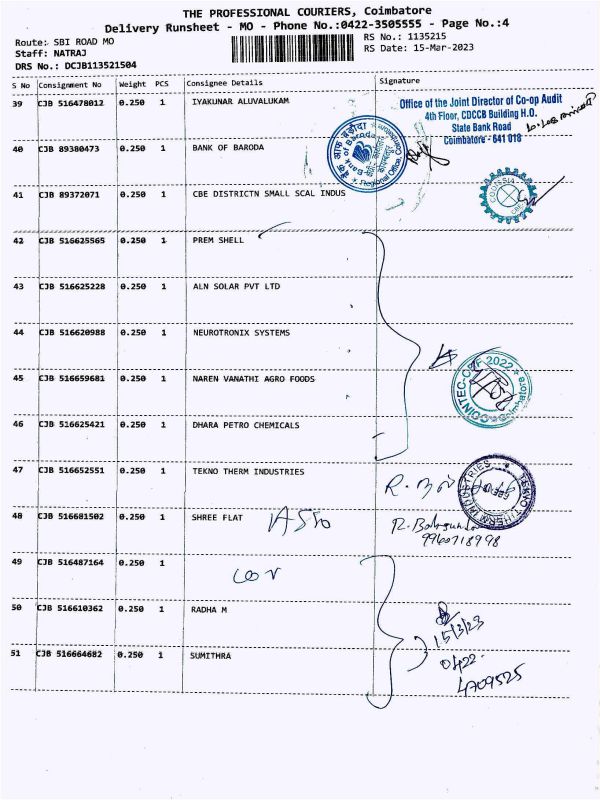 THE PROFESSIONAL COURIERS, Coimbatore
Delivery Runsheet - MO - Phone No.:0422-3505555 - Page No.:4
Route: SBI ROAD MO
Staff: NATRAJ
DRS No.: DCJB113521504
RS No.: 1135215
RS Date: 15-Mar-2023
S No Consignment No Weight PCS Consignee Details Signature
39 CJB 516478012 0.250 1 IYAKUNAR ALUVALUKAM
Office of the Joint Director of Co-op Audit
4th Floor, CDCCB Building H.O.
State Bank Road
Coimbatore - 641 018
40 CJB 89380473 0.250 1 BANK OF BARODA
बैंक ऑफ़ बड़ौदा
Bank of Baroda
Regional Office
41 CJB 89372071 0.250 1 CBE DISTRICTN SMALL SCAL INDUS
CODISSIA
42 CJB 516625565 0.250 1 PREM SHELL
43 CJB 516625228 0.250 1 ALN SOLAR PVT LTD
44 CJB 516620988 0.250 1 NEUROTRONIX SYSTEMS
45 CJB 516659681 0.250 1 NAREN VANATHI AGRO FOODS
2022
Coimbatore
46 CJB 516625421 0.250 1 DHARA PETRO CHEMICALS
47 CJB 516652551 0.250 1 TEKNO THERM INDUSTRIES
TEKNO THERM INDUSTRIES
48 CJB 516681502 0.250 1 SHREE FLAT
9960718998
49 CJB 516487164 0.250 1
50 CJB 516610362 0.250 1 RADHA M
15/3/23
51 CJB 516664682 0.250 1 SUMITHRA
0422-
4709525